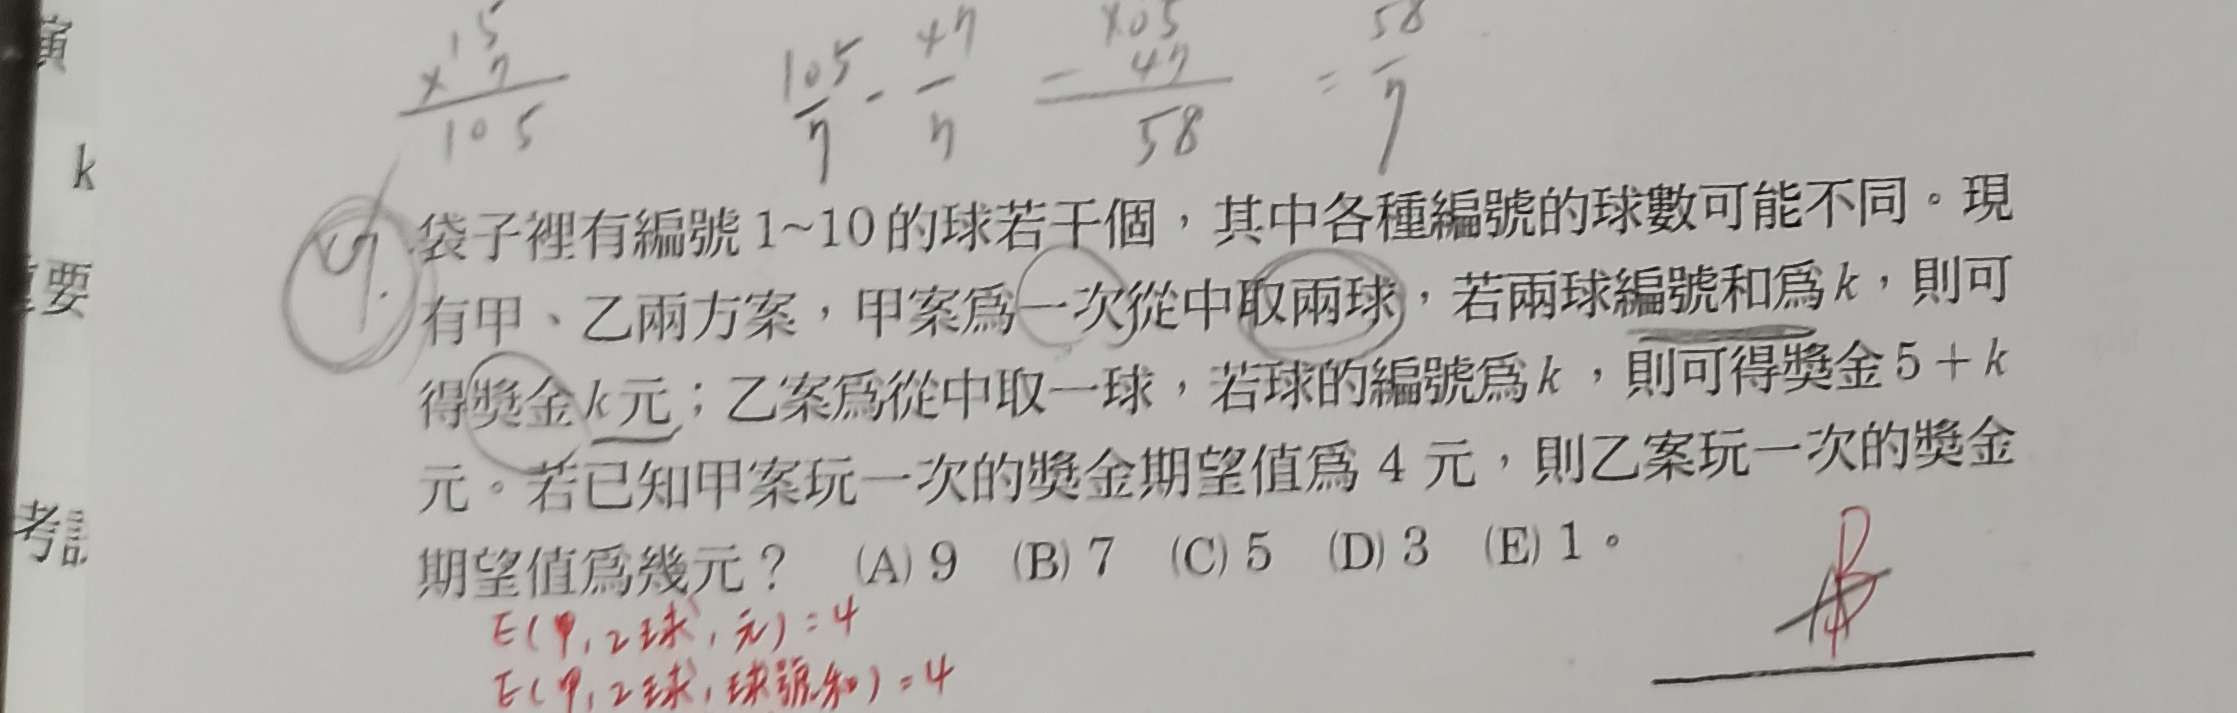 演
k
要
考
15
× 7
105
105/7 - 47/7
105
- 47
58
= 58/7
9.
袋子裡有編號1~10的球若干個，其中各種編號的球數可能不同。現
有甲、乙兩方案，甲案為一次從中取兩球，若兩球編號和為k，則可
得獎金k元；乙案為從中取一球，若球的編號為k，則可得獎金5+k
元。若已知甲案玩一次的獎金期望值為 4 元，則乙案玩一次的獎金
期望值為幾元？ (A) 9 (B) 7 (C) 5 (D) 3 (E) 1。
E(甲,2球,元)=4
E(甲,2球,球號和)=4
B